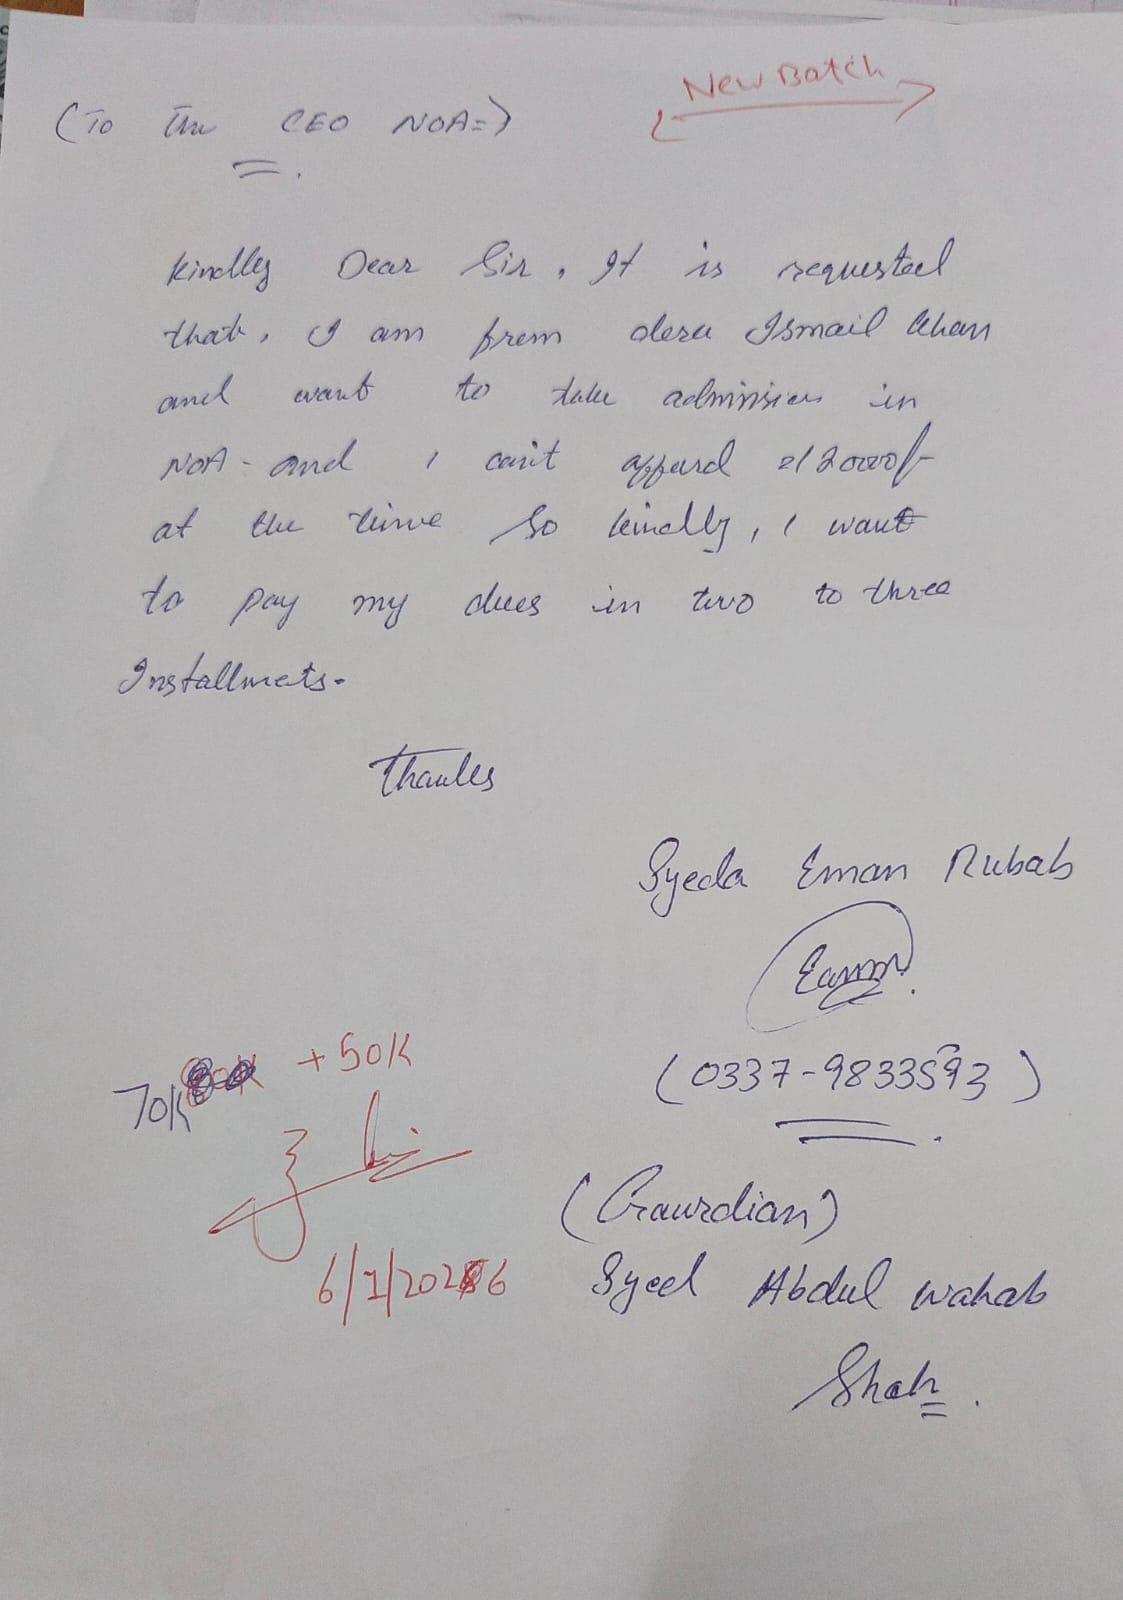 New Batch
(To The CEO NOA=)
Kindley Dear Sir, It is requested
that, I am from dera Ismail Khan
and want to take admission in
NOA - and I can't afford 120000/-
at the time So kindly, I want
to pay my dues in two to three
Installmets.
Thanks
Syeda Eman Rubab
(0337-9833593)
70K + 50K
(Gaurdian)
6/1/2026
Syed Abdul Wahab
Shah.